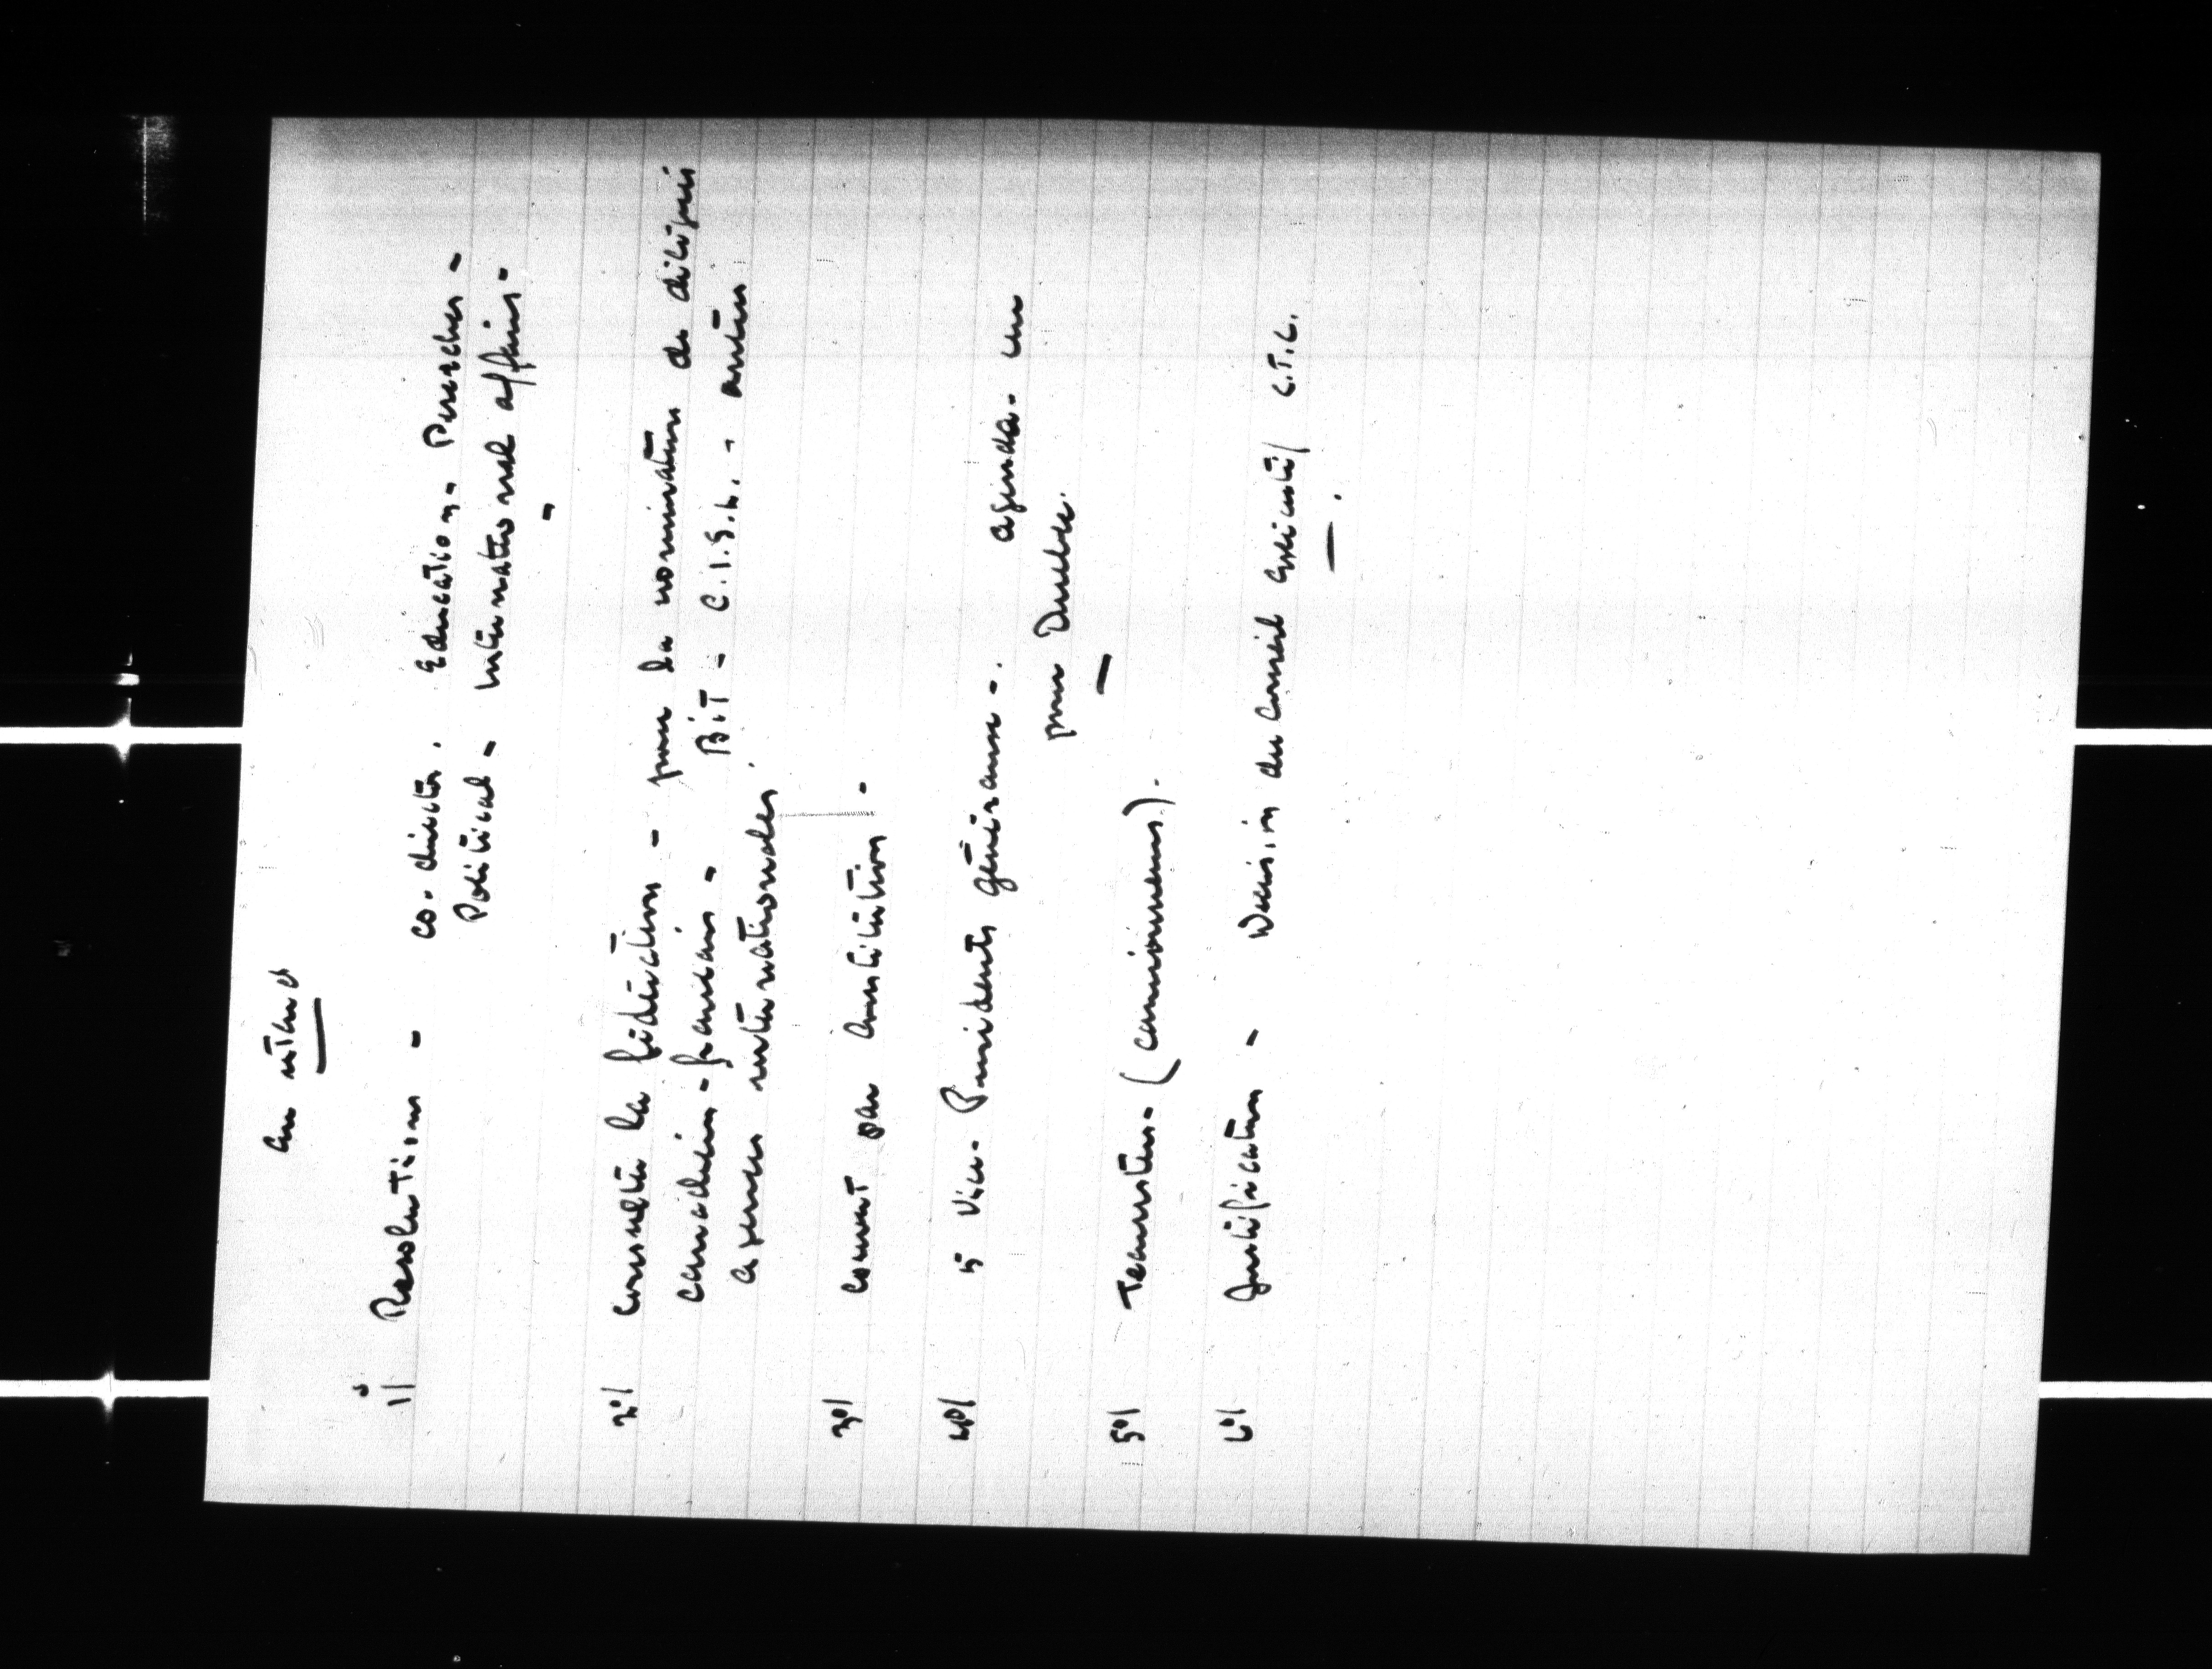 1°/ Resolutions - co. direct. Education - Research -
Political - international affairs -
2°/ consulter la fédération - pour la nomination de délégués
canadien-français - BiT - C.I.S.L. - autres
agences internationales.
3°/ Comité sur constitution -
4°/ 5 Vice-Présidents généraux - . agenda - un
pour Québec.
5°/ Teamsters - (camionneurs).
6°/ Justification - Décision du Conseil exécutif C.T.C.